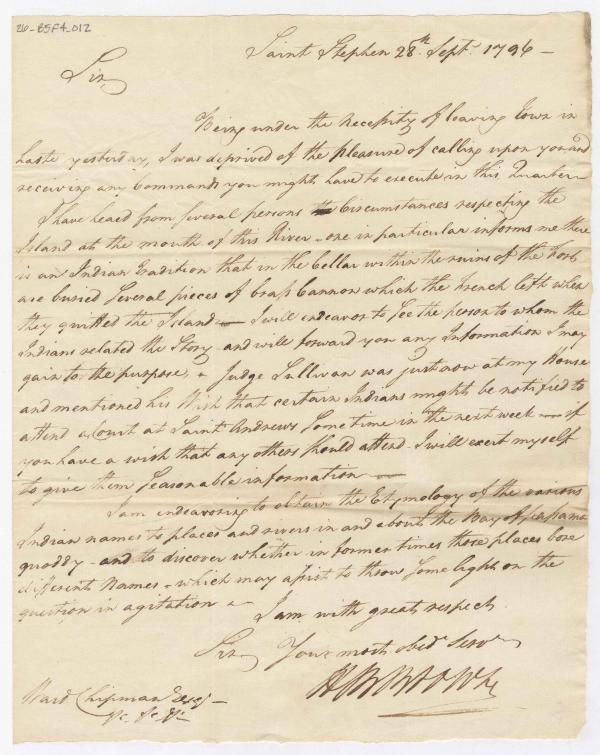 26-BSF4-012
Saint Stephen 28th Sept. 1796 —
Sir,
Being under the necessity of leaving Town in
haste yesterday, I was deprived of the pleasure of calling upon you and
receiving any Commands you might have to execute in this Quarter —
I have leaed from several persons Circumstances respecting the
Island at the mouth of this River - one in particular informs me there
is an Indian Tradition that in the Cellar within the ruins of the Fort
are buried several pieces of brass Cannon which the French left when
they quitted the Island — I will endeavor to see the person to whom the
Indians related the Story - and will forward you any Information I may
gain to the purpose, - Judge Sullivan was just now at my House
and mentioned his Wish that certain Indians might be notified to
attend a Court at Saint Andrews sometime in the next week — if
you have a wish that any others should attend - I will exert myself
to give them seasonable information —
I am endeavoring to obtain the Etymology of the various
Indian names to places and rivers in and about the Bay of passama
quoddy - and to discover whether in former times those places bore
different Names - which may assist to throw some light on the
question in agitation -
I am with great respect
Sir, Your most obedt Servt
Ward Chipman Esqr —
&c. &c. &c.